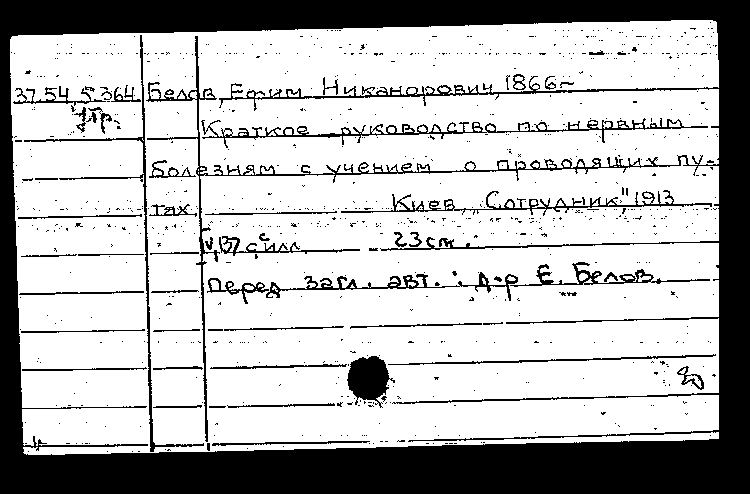 37.54.5.364 Белов, Ефим Никанорович, 1866-
Краткое руководство по нервным
болезням с учением о проводящих пу-
тях. Киев, "Сотрудник", 1913
IV, 137 с. с илл. 23 см.
Перед загл. авт.: д-р Е. Белов.